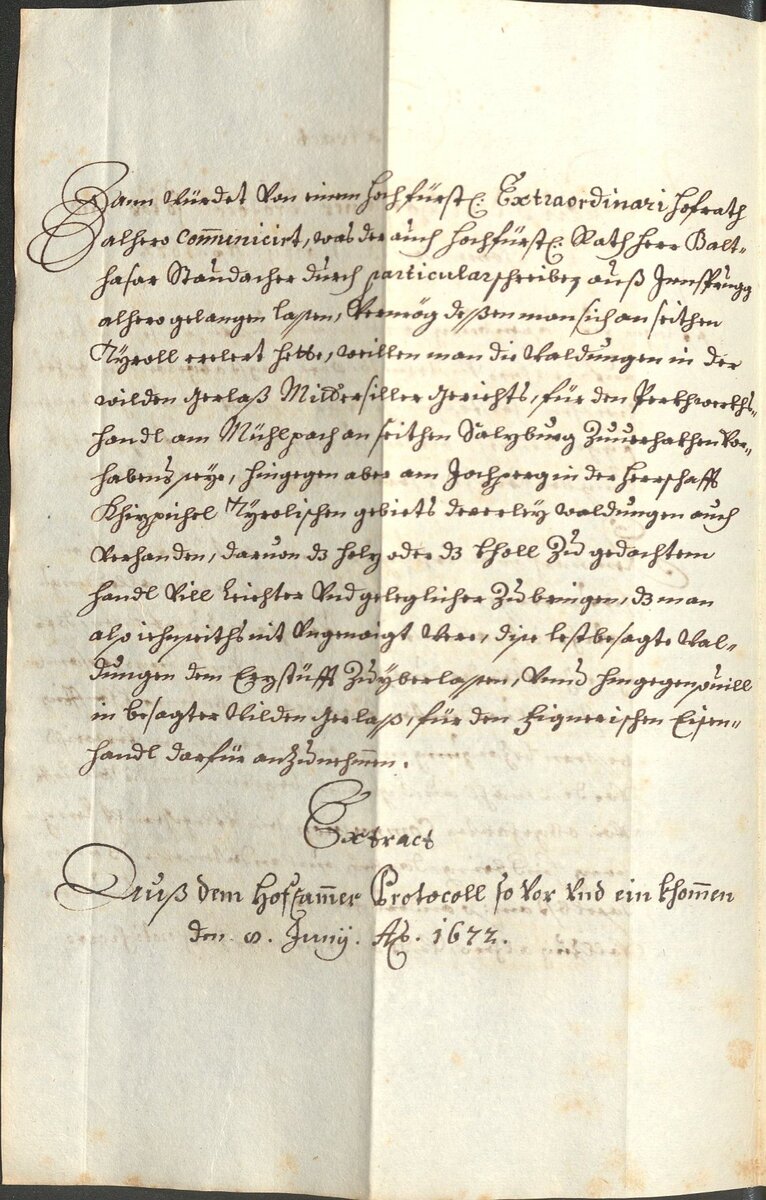 Dann würdet von einem hochfürstl: Extraordinari Hofrath
alhero com̄unicirt, was der auch hochfürstl: Rath Herr Balt-
hasar Staudacher durch particularschreiben auß Innsprugg
alhero gelangen lassen, Vermög dessen man sich an seithen
Tyroll erclert hette, weillen man die Waldungen in der
wilden Gerlaß Mittersiller Gerichts, für den Perkhwerchs-
handl am Mühlpach an seithen Salzburg Zuuerhakhen Vor-
habens seye, hingegen aber am Jochperg in der Herrschafft
Khizpichel Tyrolischen gebiets dererley waldungen auch
Verhanden, daruon dz holz oder dz kholl Zu gedachtem
handl Vill leichter Vnd geleglicher Zubringen, dz man
also ienseiths nit Vngenaigt Were, dise lestbesagte Wal-
dungen dem Erzstüfft Zuyberlassen, Vnnd hingegen souill
in besagter Wilden Gerlass, für den Eisen-
handl darfür anzunehmen.
Extract
Auß dem Hofcam̄er Protocoll so Vor Vnd einkhom̄en
den 8. Junij. Ao. 1672.